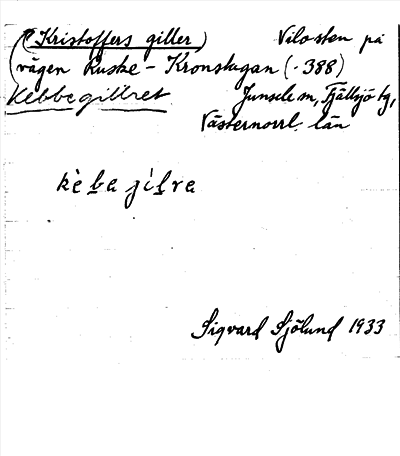 (Kristoffers giller) Vilosten på
(vägen Ruske - Kronstugan (· 388)
Kebbegillret Junsele sn, Fjällsjö tg,
Västernorrl. län
kè ba ji̇́lra
Sigvard Sjölund 1933